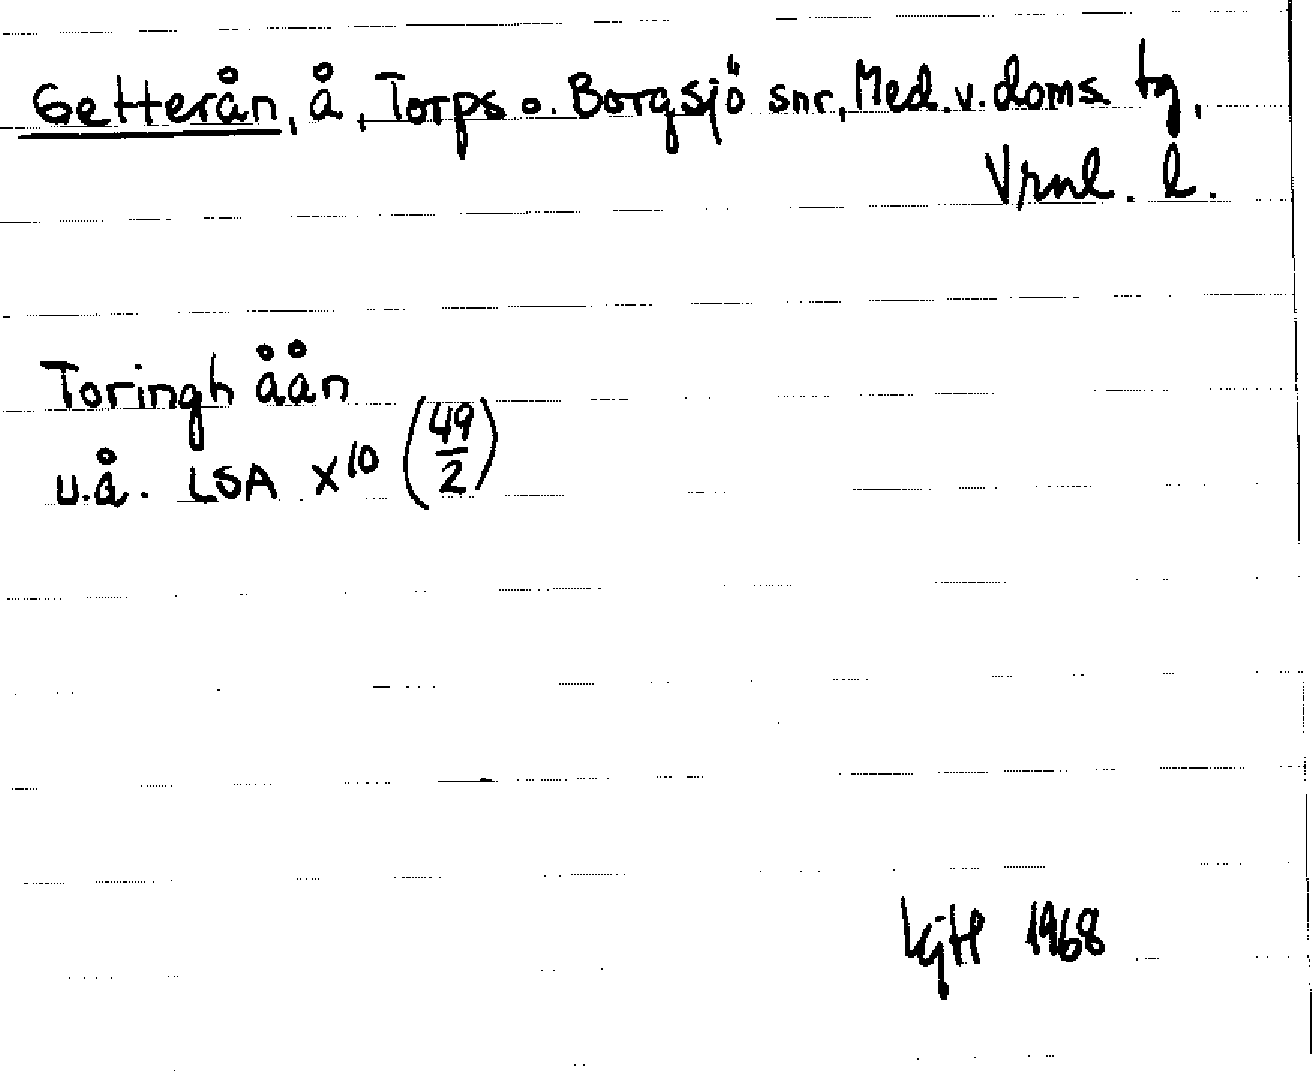 Getterån, å, Torps o. Borgsjö snr, Med. v. doms. tg,
Vrnl. l.
Toringh åån
u.å. LSA X¹⁰ (49/2)
1968